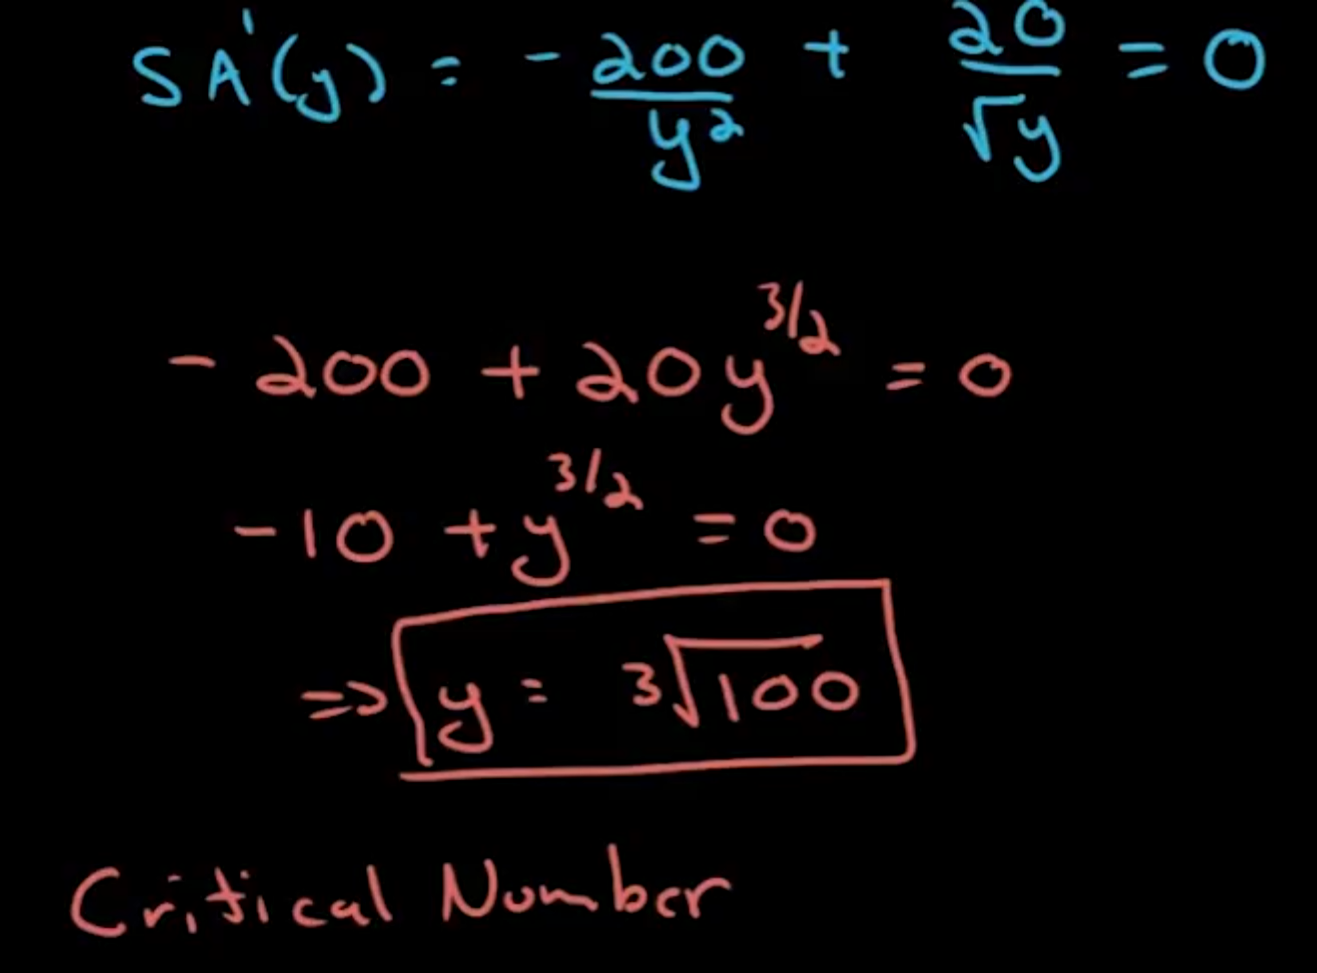 SA'(y) = -200/y² + 20/√y = 0
-200 + 20y^{3/2} = 0
-10 + y^{3/2} = 0
⇒ y = ³√100
Critical Number